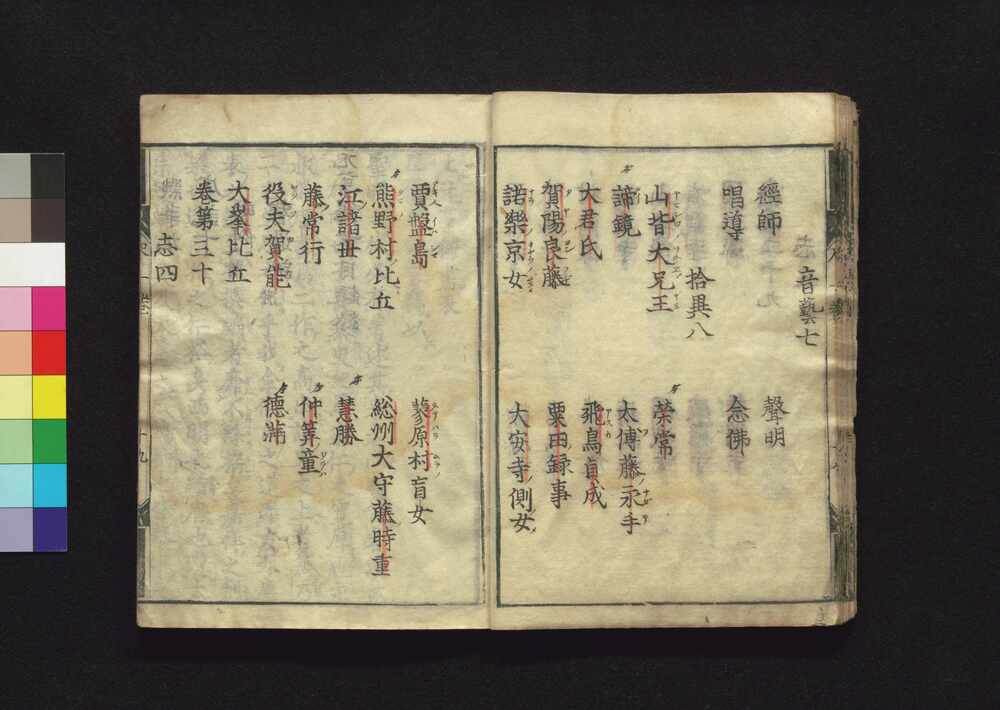 音藝七
經師　聲明
唱導　念佛
拾異八
山背大兄王　榮常
諦鏡　太傅藤永手
大君氏　飛鳥貞成
賀陽良藤　粟田録事
諾樂京女　大安寺側女
賈盤島　蓼原村盲女
熊野村比丘　総州大守藤時重
江諸世　慧勝
藤常行　仲算童
役夫賀能　德滿
大峯比丘
卷第三十
志四